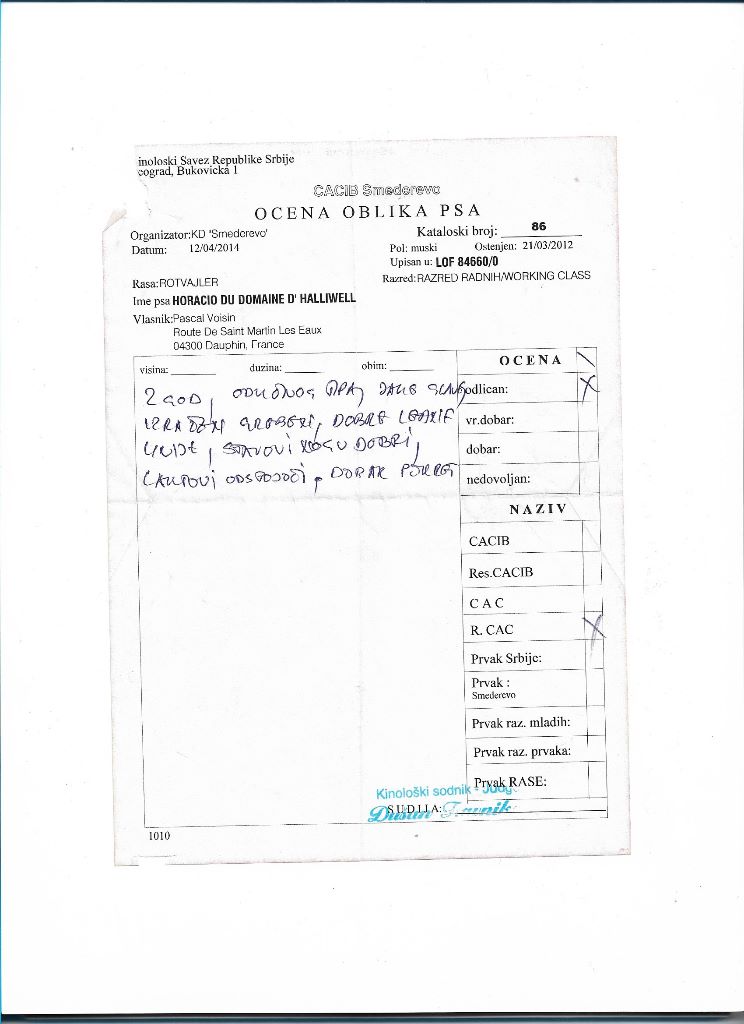 inoloski Savez Republike Srbije
eograd, Bukovicka 1
CACIB Smederevo
OCENA OBLIKA PSA
Organizator:KD 'Smederevo'
Kataloski broj: 86
Datum: 12/04/2014
Pol: muski Ostenjen: 21/03/2012
Upisan u: LOF 84660/0
Rasa:ROTVAJLER
Razred:RAZRED RADNIH/WORKING CLASS
Ime psa HORACIO DU DOMAINE D' HALLIWELL
Vlasnik:Pascal Voisin
Route De Saint Martin Les Eaux
04300 Dauphin, France
visina: duzina: obim:
2 GOD, ODLIČNOG TIPA, JAKE GLAVE
IZRAŽENI GREBENI, DOBRE LEĐNE
LINIJE, STAVOVI NOGU DOBRI,
LAKTOVI ODSTOJEĆI, DOBAR POKRET
OCENA \
odlican: X
vr.dobar:
dobar:
nedovoljan:
NAZIV
CACIB
Res.CACIB
C A C
R. CAC X
Prvak Srbije:
Prvak :
Smederevo
Prvak raz. mladih:
Prvak raz. prvaka:
Prvak RASE:
Kinološki sodnik - Judg
SUDIJA:
1010